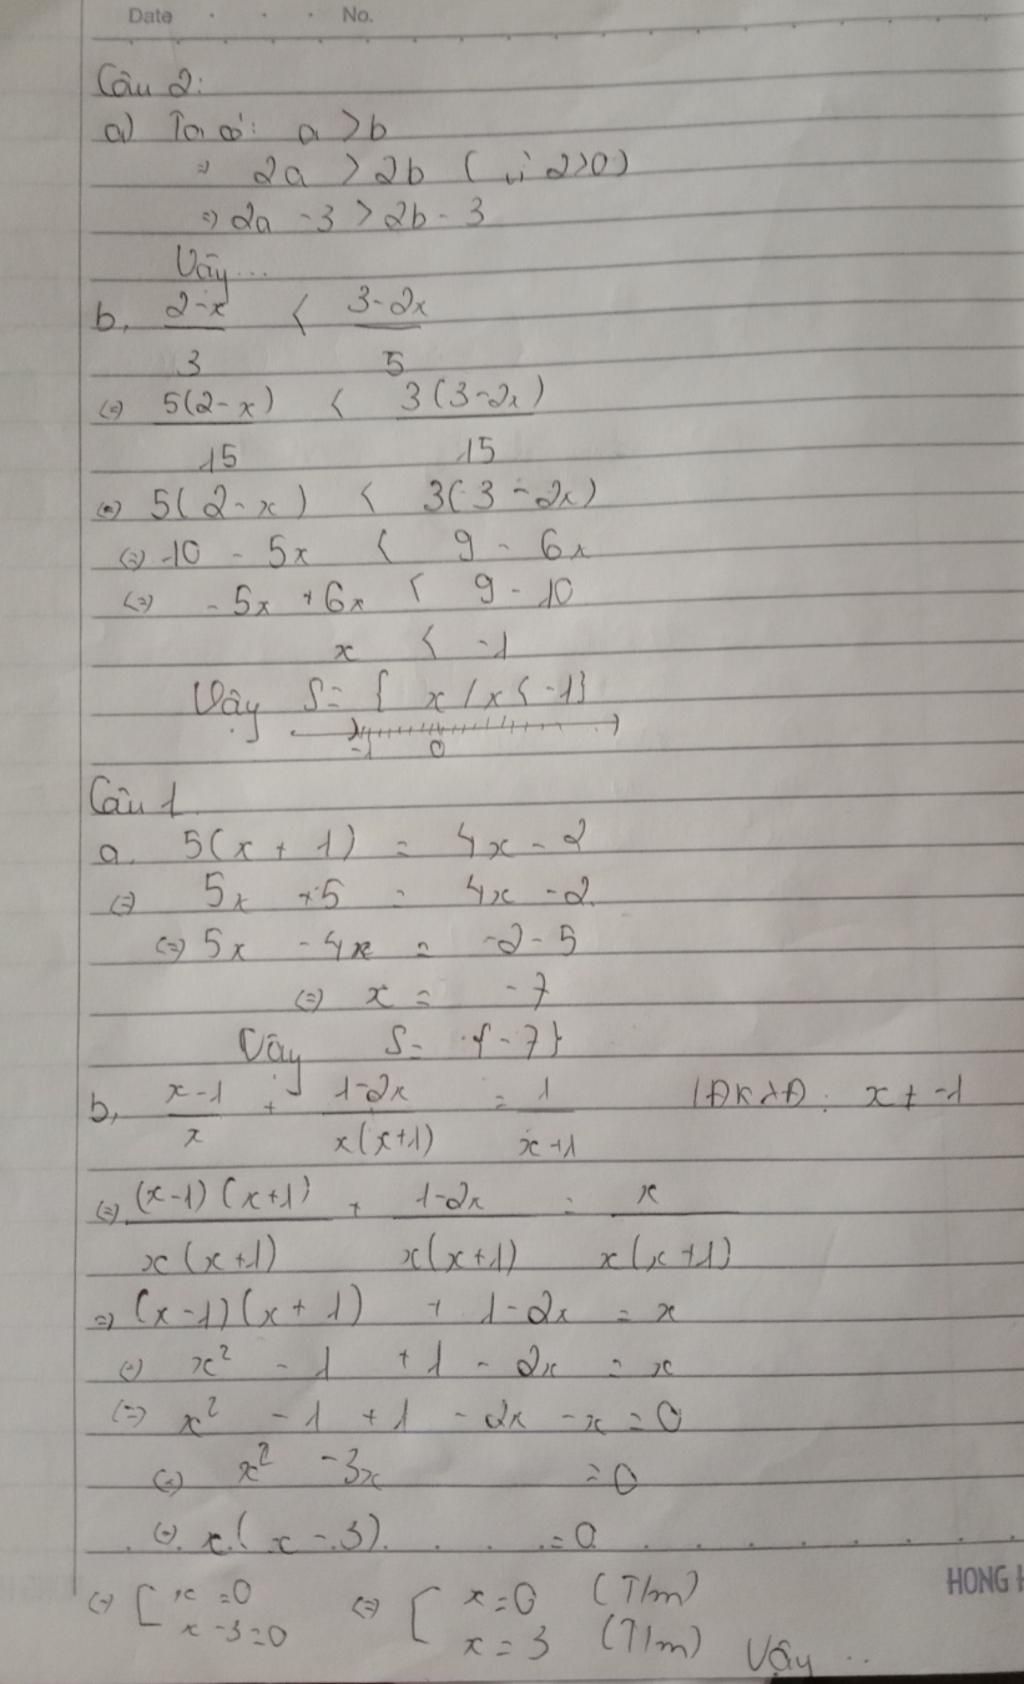 Date No.
Câu 2:
a) Ta có: a > b
=> 2a > 2b ( vì 2>0)
=> 2a - 3 > 2b - 3
Vậy ...
b, (2-x)/3 < (3-2x)/5
<=> 5(2-x)/15 < 3(3-2x)/15
<=> 5(2-x) < 3(3-2x)
<=> 10 - 5x < 9 - 6x
<=> -5x + 6x < 9 - 10
x < -1
Vậy S= { x / x < -1}
-1 0
Câu 1
a. 5(x + 1) = 4x - 2
<=> 5x +5 = 4x -2
<=> 5x - 4x = -2-5
<=> x = -7
Vậy S= {-7}
b, (x-1)/x + (1-2x)/(x(x+1)) = 1/(x+1) ĐKXĐ: x ≠ -1
<=> (x-1)(x+1)/(x(x+1)) + (1-2x)/(x(x+1)) = x/(x(x+1))
=> (x-1)(x+1) + 1-2x = x
<=> x² - 1 + 1 - 2x = x
<=> x² - 1 + 1 - 2x - x = 0
<=> x² - 3x = 0
<=> x(x - 3) = 0
<=> [ x = 0 <=> [ x = 0 (T/m)
x - 3 = 0 x = 3 (T/m) Vậy ..
HONG H